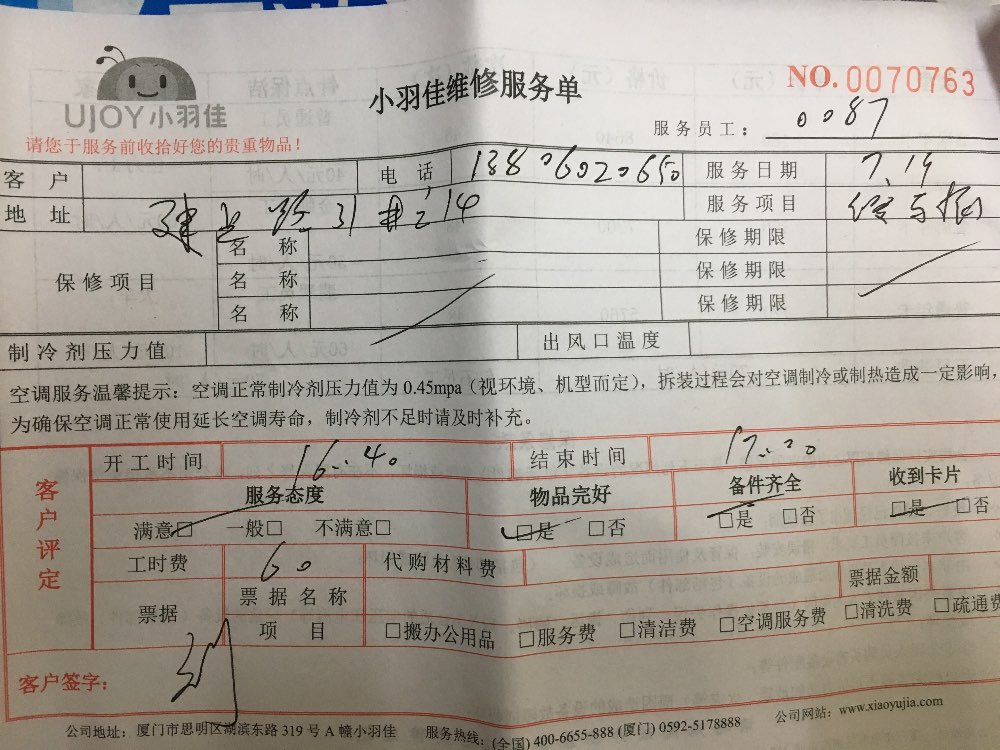 UJOY小羽佳
小羽佳维修服务单
NO.0070763
请您于服务前收拾好您的贵重物品！
服务员工： 0087
客 户 电 话 13806020650 服务日期 7.19
地 址 建业路31 服务项目
保修项目 名 称 保修期限
名 称 保修期限
名 称 保修期限
制冷剂压力值 出风口温度
空调服务温馨提示：空调正常制冷剂压力值为0.45mpa（视环境、机型而定），拆装过程会对空调制冷或制热造成一定影响，
为确保空调正常使用延长空调寿命，制冷剂不足时请及时补充。
客户评定 开工时间 16:40 结束时间 17:20
服务态度 物品完好 备件齐全 收到卡片
满意□ 一般□ 不满意□ □是 □否 □是 □否 □是 □否
工时费 60 代购材料费
票据 票据名称 票据金额
项 目 □搬办公用品 □服务费 □清洁费 □空调服务费 □清洗费 □疏通费
客户签字：
公司地址：厦门市思明区湖滨东路319号A幢小羽佳 服务热线：(全国) 400-6655-888 (厦门) 0592-5178888 公司网站：www.xiaoyujia.com